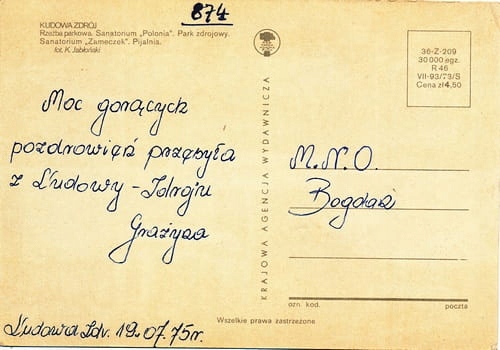 874
KUDOWA ZDRÓJ
Rzeźba parkowa. Sanatorium „Polonia”. Park zdrojowy.
Sanatorium „Zameczek”. Pijalnia.
fot. K. Jabłoński
36-Z-209
30 000 egz.
R 46
VII-93/73/S
Cena zł 4,50
Moc gorących
pozdrowień przesyła
z Kudowy-Zdroju
Grażyna
KRAJOWA AGENCJA WYDAWNICZA
M.N.O.
Bogdan
ozn. kod. poczta
Wszelkie prawa zastrzeżone
Kudowa Zdr. 19.07.75r.